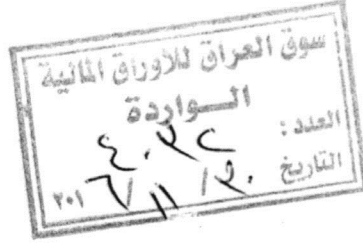 سوق العراق للاوراق المالية
الـــواردة
العدد :
التاريخ ٢٠ / ١١ / ٢٠١٦